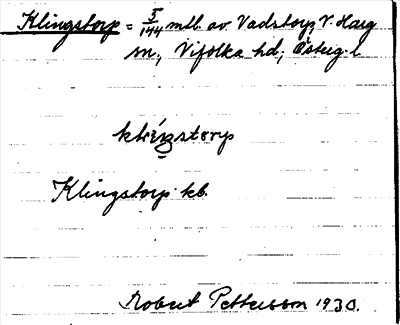 Klingstorp = 5/144 mtl. av Vadstorp, V. Harg
sn., Vifolka hd; Östug. l.
klingstorp
Klingstorp kb.
Robert Pettersson 1930.